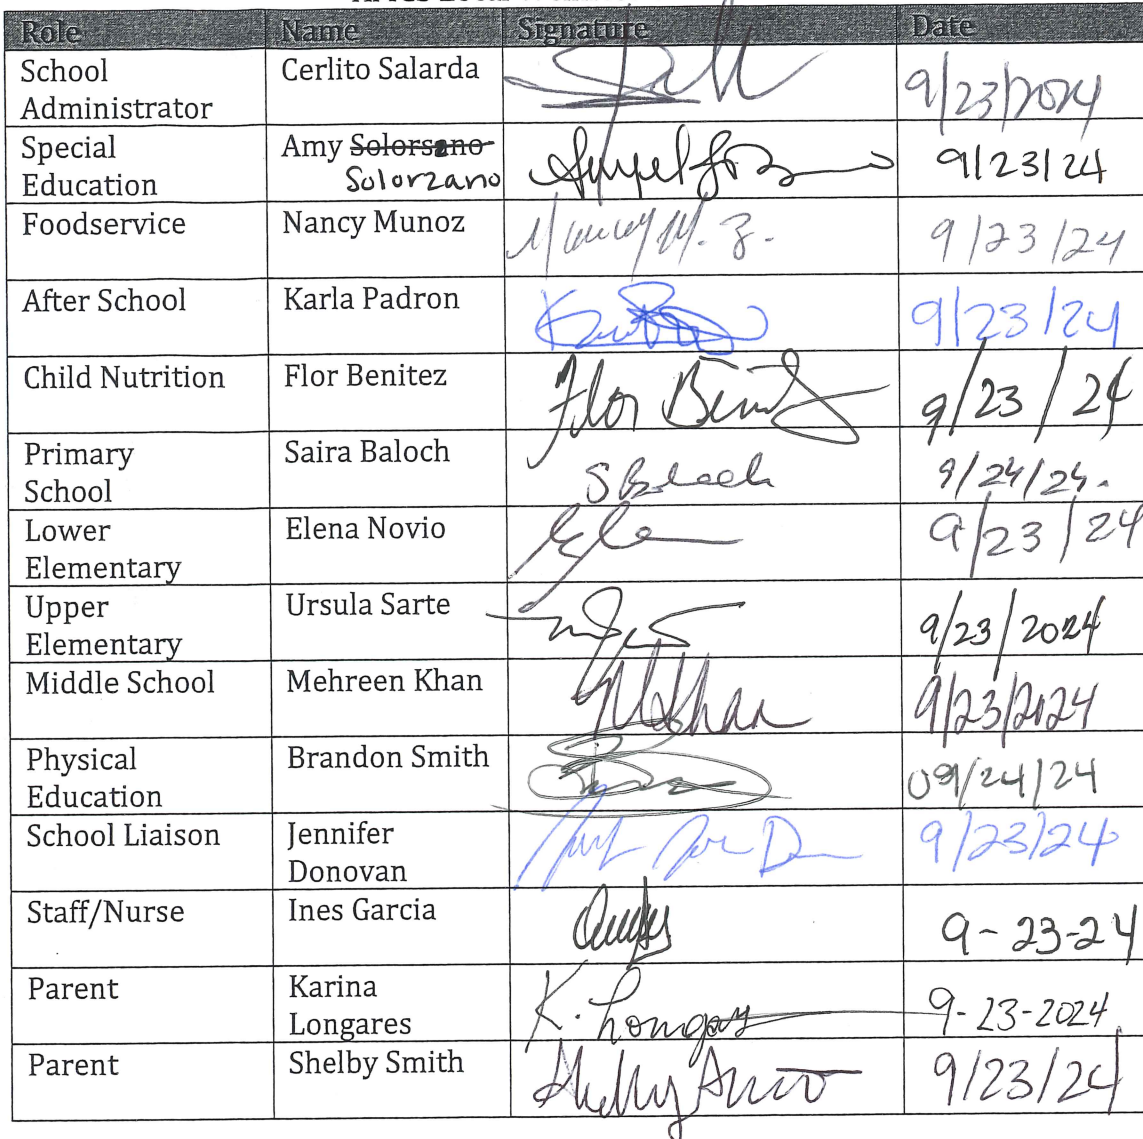 Role Name Signature Date
School Administrator Cerlito Salarda 9/23/2024
Special Education Amy Solorsano Solorzano 9/23/24
Foodservice Nancy Munoz Nancy M. Z. 9/23/24
After School Karla Padron 9/23/24
Child Nutrition Flor Benitez Flor 9/23/24
Primary School Saira Baloch S Baloch 9/24/24.
Lower Elementary Elena Novio 9/23/24
Upper Elementary Ursula Sarte 9/23/2024
Middle School Mehreen Khan MKhan 9/23/2024
Physical Education Brandon Smith 09/24/24
School Liaison Jennifer Donovan 9/23/24
Staff/Nurse Ines Garcia 9-23-24
Parent Karina Longares K. 9-23-2024
Parent Shelby Smith Shelby 9/23/24